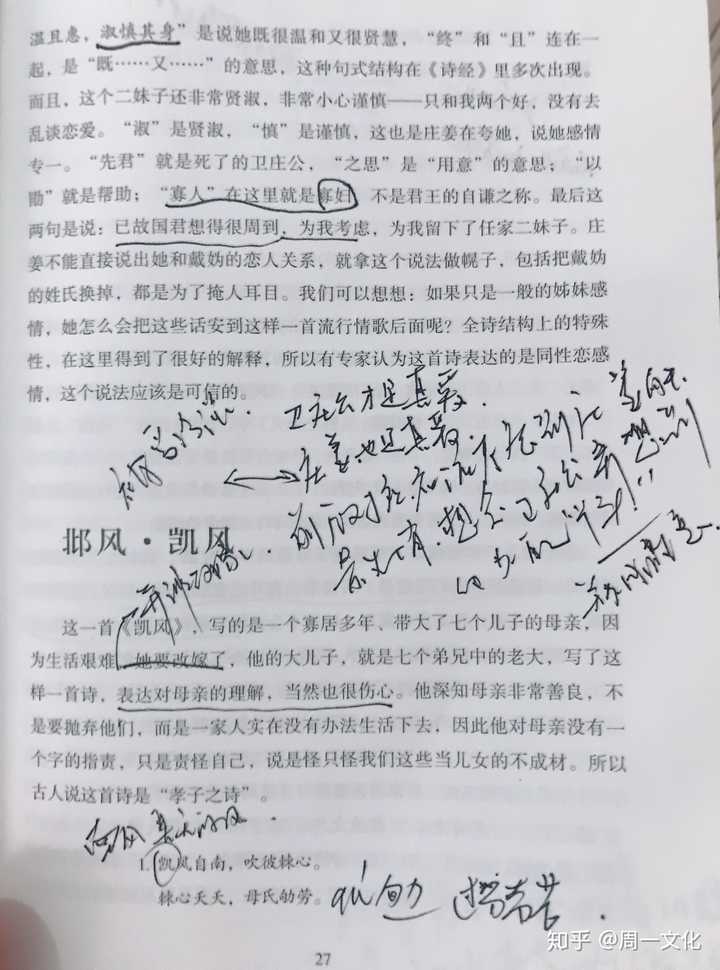 温且惠，淑慎其身”是说她既很温和又很贤慧，“终”和“且”连在一
起，是“既……又……”的意思，这种句式结构在《诗经》里多次出现。
而且，这个二妹子还非常贤淑，非常小心谨慎——只和我两个好，没有去
乱谈恋爱。“淑”是贤淑，“慎”是谨慎，这也是庄姜在夸她，说她感情
专一。“先君”就是死了的卫庄公，“之思”是“用意”的意思；“以
勖”就是帮助；“寡人”在这里就是寡妇，不是君王的自谦之称。最后这
两句是说：已故国君想得很周到，为我考虑，为我留下了任家二妹子。庄
姜不能直接说出她和戴妫的恋人关系，就拿这个说法做幌子，包括把戴妫
的姓氏换掉，都是为了掩人耳目。我们可以想想：如果只是一般的姊妹感
情，她怎么会把这些话安到这样一首流行情歌后面呢？全诗结构上的特殊
性，在这里得到了很好的解释，所以有专家认为这首诗表达的是同性恋感
情，这个说法应该是可信的。
卫庄公才是真爱
邶风·凯风
这一首《凯风》，写的是一个寡居多年、带大了七个儿子的母亲，因
为生活艰难，她要改嫁了，他的大儿子，就是七个弟兄中的老大，写了这
样一首诗，表达对母亲的理解，当然也很伤心。他深知母亲非常善良，不
是要抛弃他们，而是一家人实在没有办法生活下去，因此他对母亲没有一
个字的指责，只是责怪自己，说是怪只怪我们这些当儿女的不成材。所以
古人说这首诗是“孝子之诗”。
1. 凯风自南，吹彼棘心。
棘心夭夭，母氏劬劳。
qú 过劳 苦
27
知乎 @周一文化